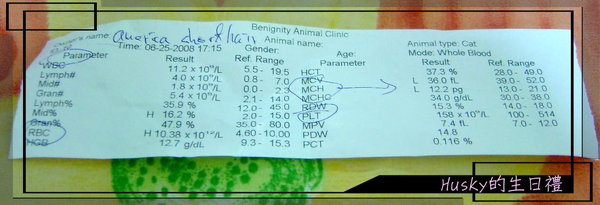 Benignity Animal Clinic
Owner's name: America short hair Animal name: Animal type: Cat
Time: 06-25-2008 17:15 Gender: Age: Mode: Whole Blood
Parameter Result Ref. Range Parameter Result Ref. Range
WBC 11.2 x 10⁹/L 5.5 - 19.5 HCT 37.3 % 28.0 - 49.0
Lymph# 4.0 x 10⁹/L 0.8 - 7.0 MCV L 36.0 fL 39.0 - 52.0
Mid# 1.8 x 10⁹/L 0.0 - 2.3 MCH L 12.2 pg 13.0 - 21.0
Gran# 5.4 x 10⁹/L 2.1 - 14.0 MCHC 34.0 g/dL 30.0 - 38.0
Lymph% 35.9 % 12.0 - 45.0 RDW 15.3 % 14.0 - 18.0
Mid% H 16.2 % 2.0 - 15.0 PLT 158 x 10⁹/L 100 - 514
Gran% 47.9 % 35.0 - 80.0 MPV 7.4 fL 7.0 - 12.0
RBC H 10.38 x 10¹²/L 4.60 - 10.00 PDW 14.8
HGB 12.7 g/dL 9.3 - 15.3 PCT 0.116 %
Husky的生日禮